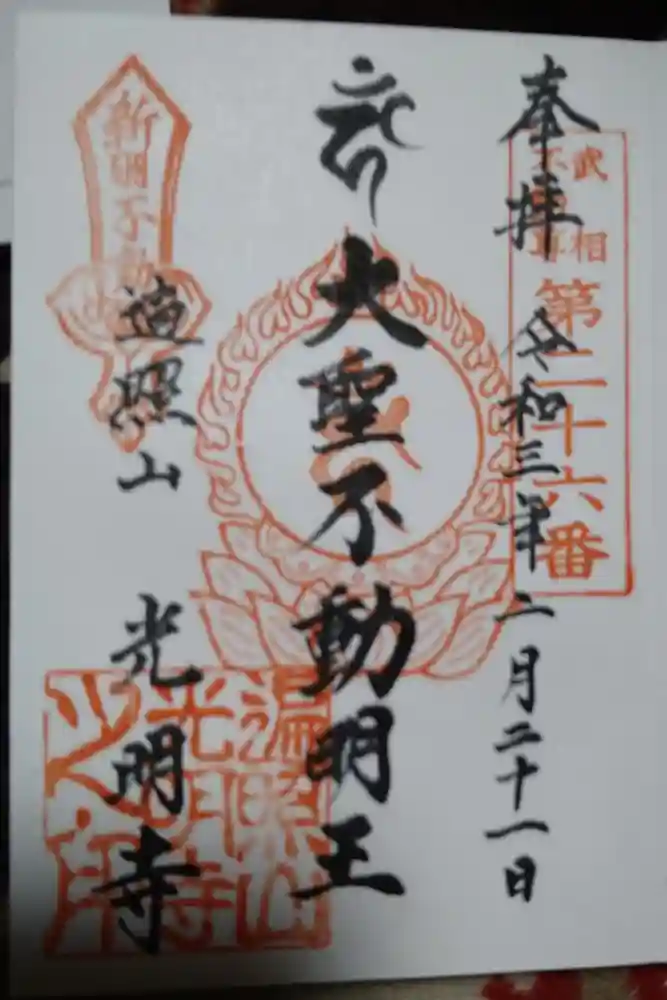 奉拝 令和三年二月二十一日
武相
不動尊
第二十六番
大聖不動明王
遍照山 光明寺
新明不動
遍照山
光明寺
之印